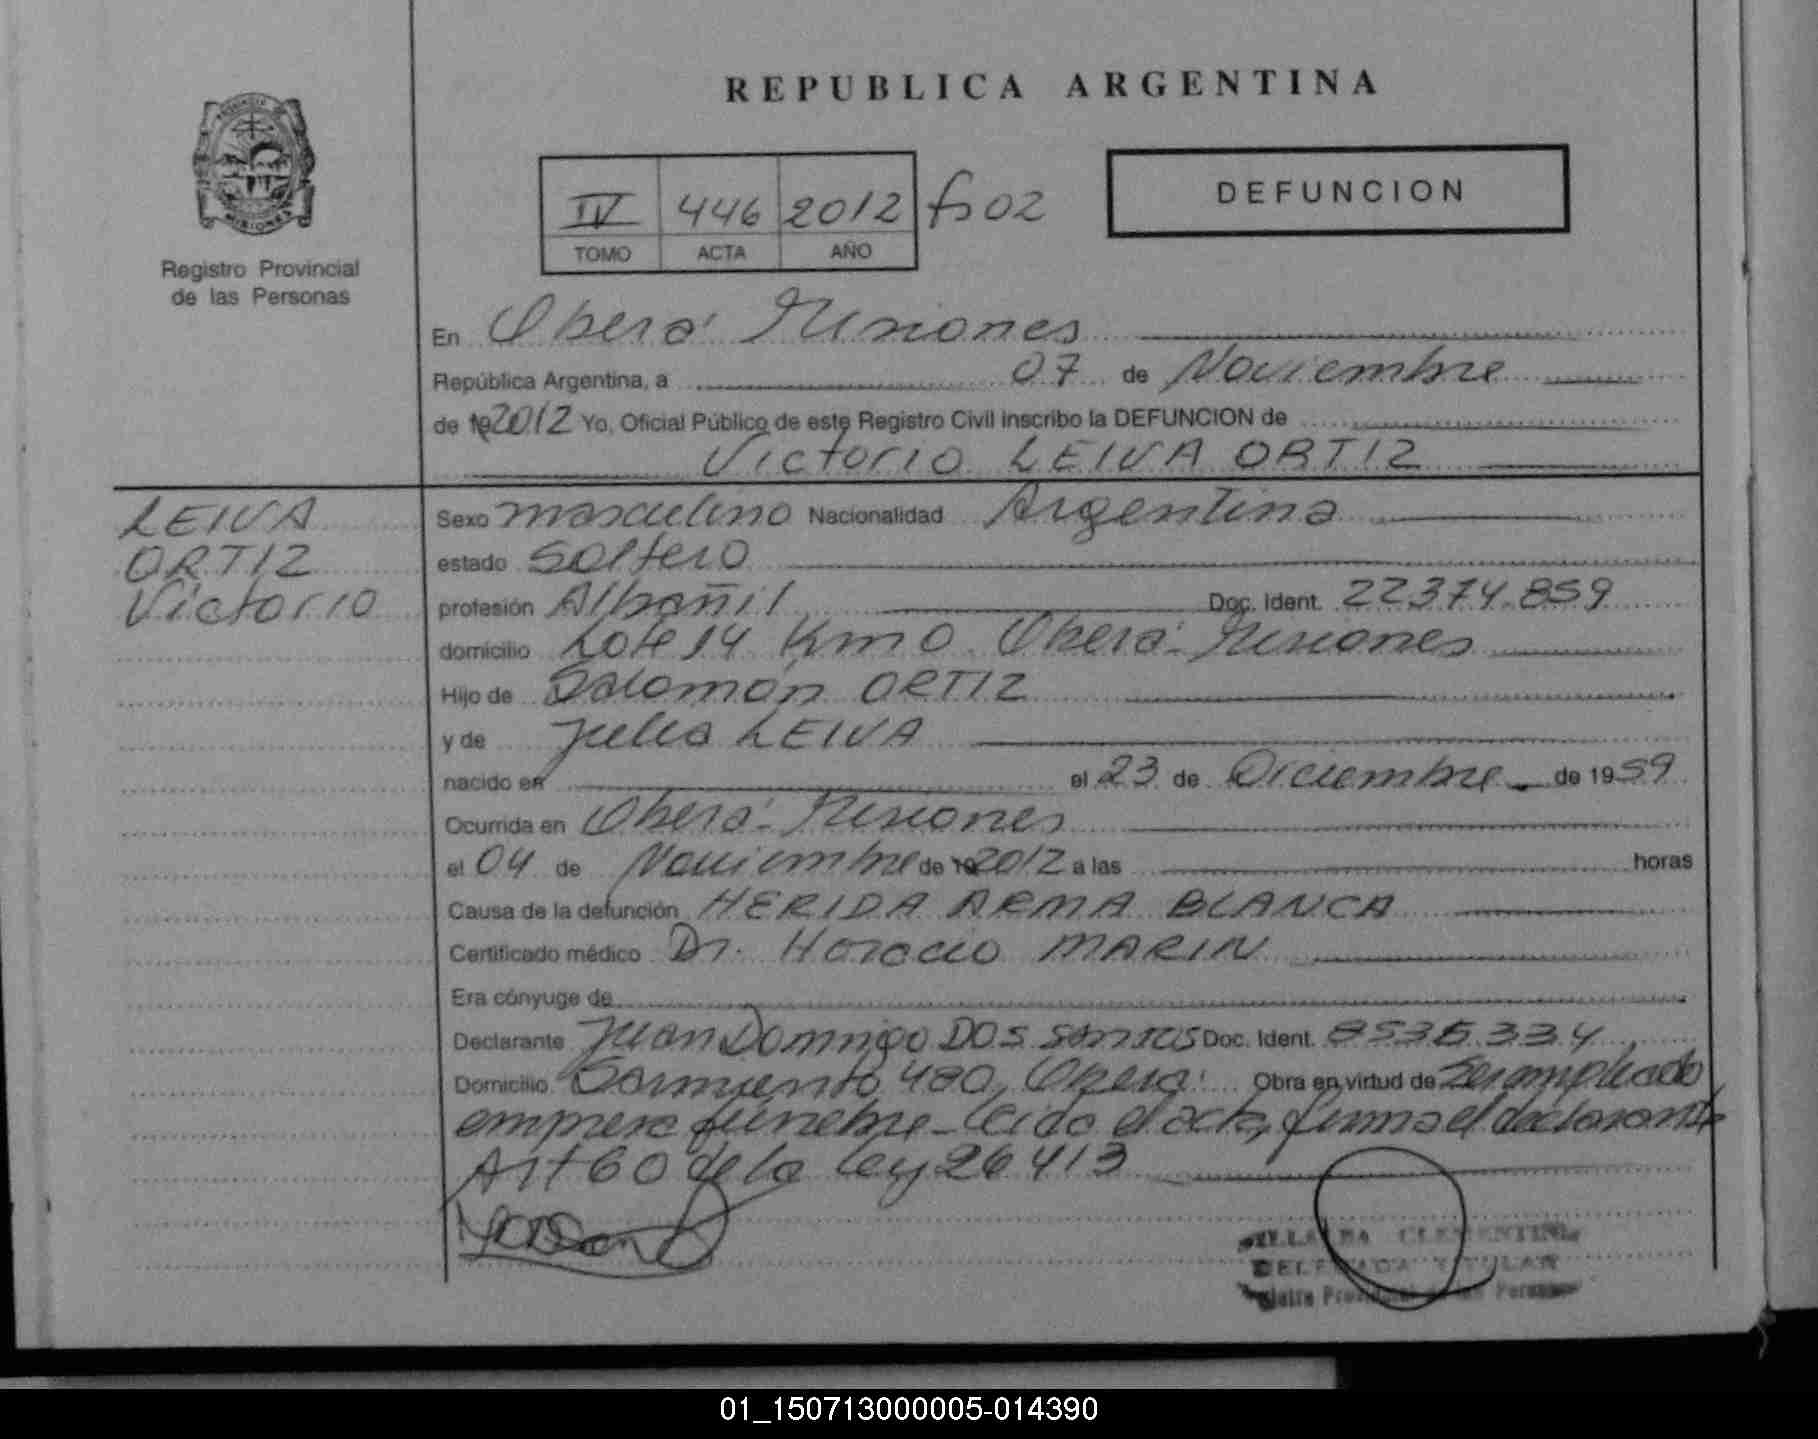 REPUBLICA ARGENTINA
MISIONES
Registro Provincial
de las Personas
IV 446 2012 fº 02
TOMO ACTA AÑO
DEFUNCION
En Oberá Misiones
República Argentina, a 07 de Noviembre
de 192012 Yo, Oficial Público de este Registro Civil inscribo la DEFUNCION de
Victorio LEIVA ORTIZ
LEIVA
ORTIZ
Victorio
Sexo masculino Nacionalidad Argentina
estado Soltero
profesión Albañil Doc. Ident. 22.374.859
domicilio Lote 14 Km 0 Oberá-Misiones
Hijo de Salomón ORTIZ
y de Julia LEIVA
nacido en el 23 de Diciembre de 1959
Ocurrida en Oberá-Misiones
el 04 de Noviembre de 192012 a las horas
Causa de la defunción HERIDA ARMA BLANCA
Certificado médico Dr. Horacio MARIN
Era cónyuge de
Declarante Juan Domingo DOS Santos Doc. Ident. 8.536.334
Domicilio Sarmiento 480, Oberá Obra en virtud de Ser empleado
empresa fúnebre - Leida el acta, firma el declarante
Art 60 de la Ley 26413
VILLALBA CLEMENTINA
DELEGADA TITULAR
Registro Provincial de las Personas
01_150713000005-014390